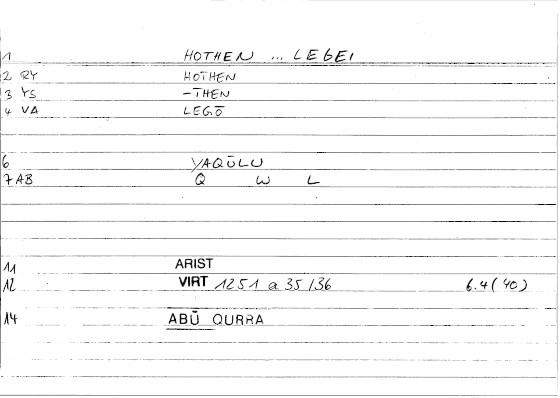 1 HOTHEN ... LEGEI
2 RY HOTHEN
3 YS -THEN
4 VA LEGŌ
6 YAQŪLU
7 AB Q W L
11 ARIST
12 VIRT 1251 a 35/36 6.4(40)
14 ABŪ QURRA